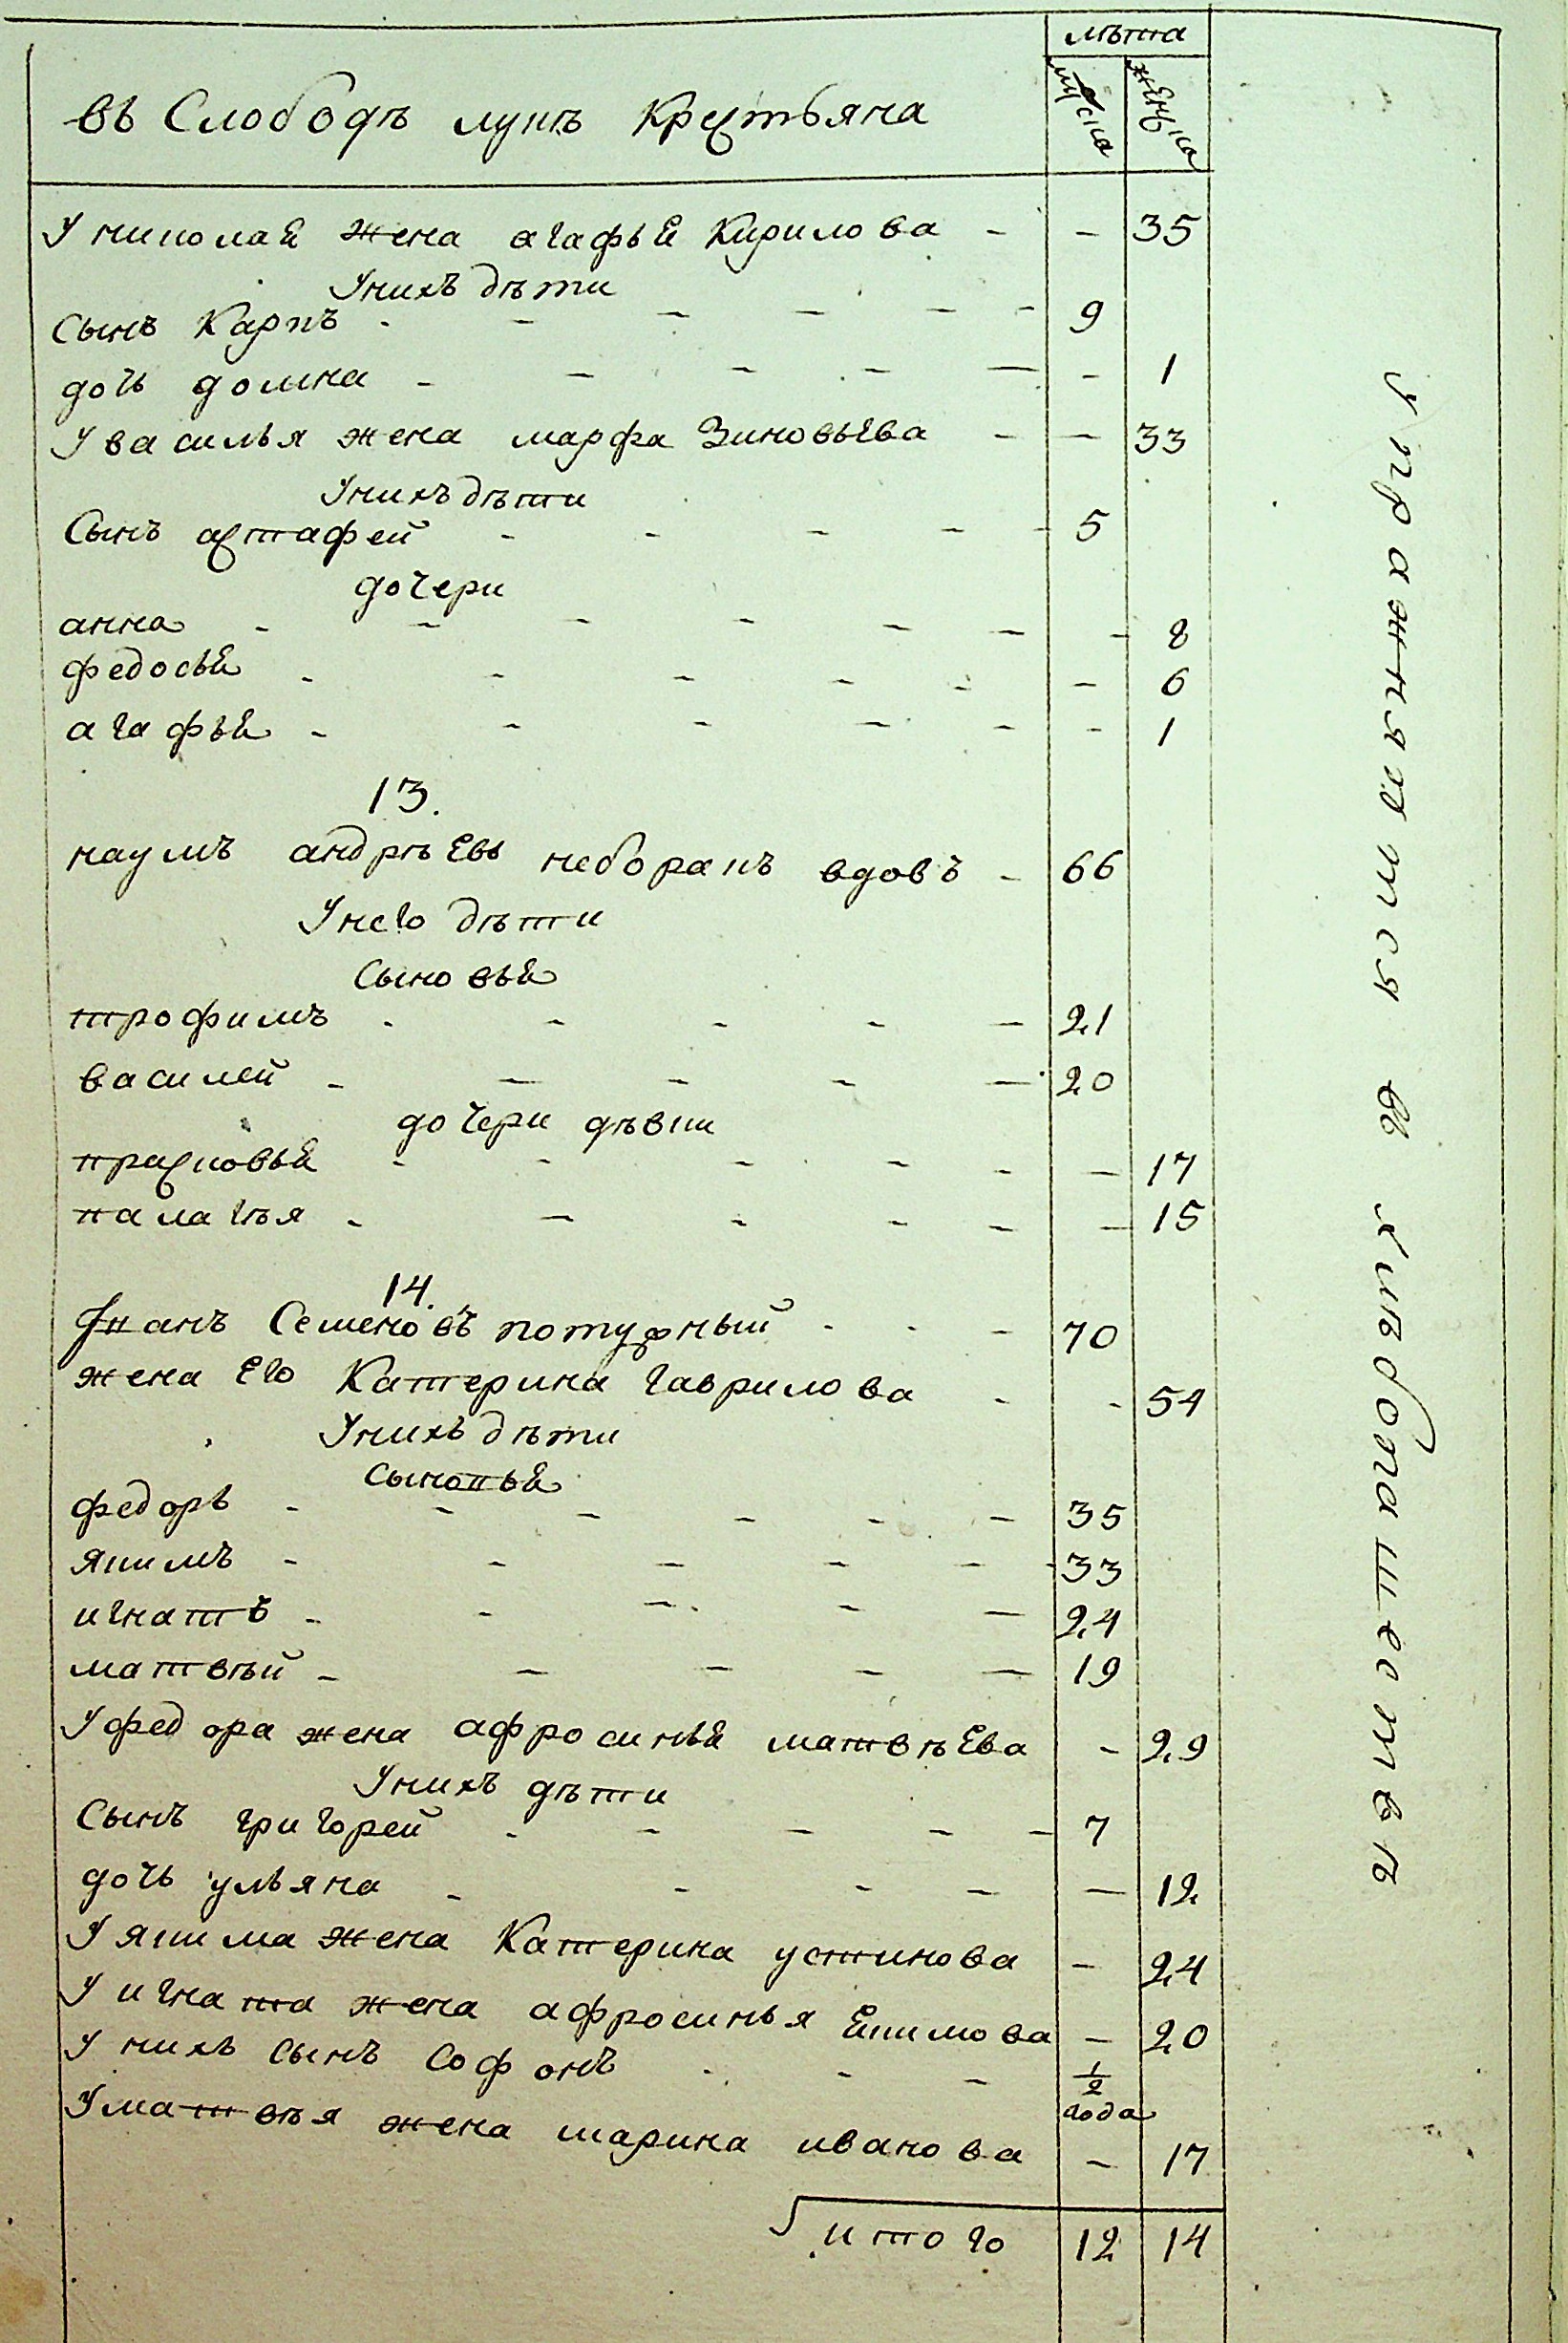 лѣта
въ Слободѣ лукѣ Крестьяна
мужска
женска
У николаӕ жена агафьӕ Кирилова - - 35
У нихъ дѣти
Сынъ Карпъ - - - - - 9
дочь домна - - - - - - 1
У василья жена марфа Зиновьева - - 33
У нихъ дѣти
Сынъ астафей - - - - 5
дочери
анна - - - - - - - 8
федосьӕ - - - - - - 6
агафьӕ - - - - - - 1
13.
наумъ андрѣевъ неборакъ вдовъ - 66
У него дѣти
Сыновьӕ
трофимъ - - - - - 21
василей - - - - - 20
дочери дѣвки
прасковьӕ - - - - - - 17
палагѣя - - - - - - 15
14.
Иванъ Семеновъ потужный - - - 70
жена Его Катерина гаврилова - - 54
У нихъ дѣти
Сыновьӕ
федоръ - - - - - - 35
якимъ - - - - - 33
игнатъ - - - - - 24
матвѣй - - - - - 19
У федора жена афросиньӕ матвѣЕва - 29
У нихъ дѣти
Сынъ григорей - - - - - 7
дочь ульяна - - - - - 12
У якима жена Катерина устинова - 24
У игната жена афросинья Екимова - 20
У нихъ Сынъ Софонъ - - - 1/2 года
У матвѣя жена марина иванова - 17
итого 12 14
упражняется въ хлѣбопашествѣ